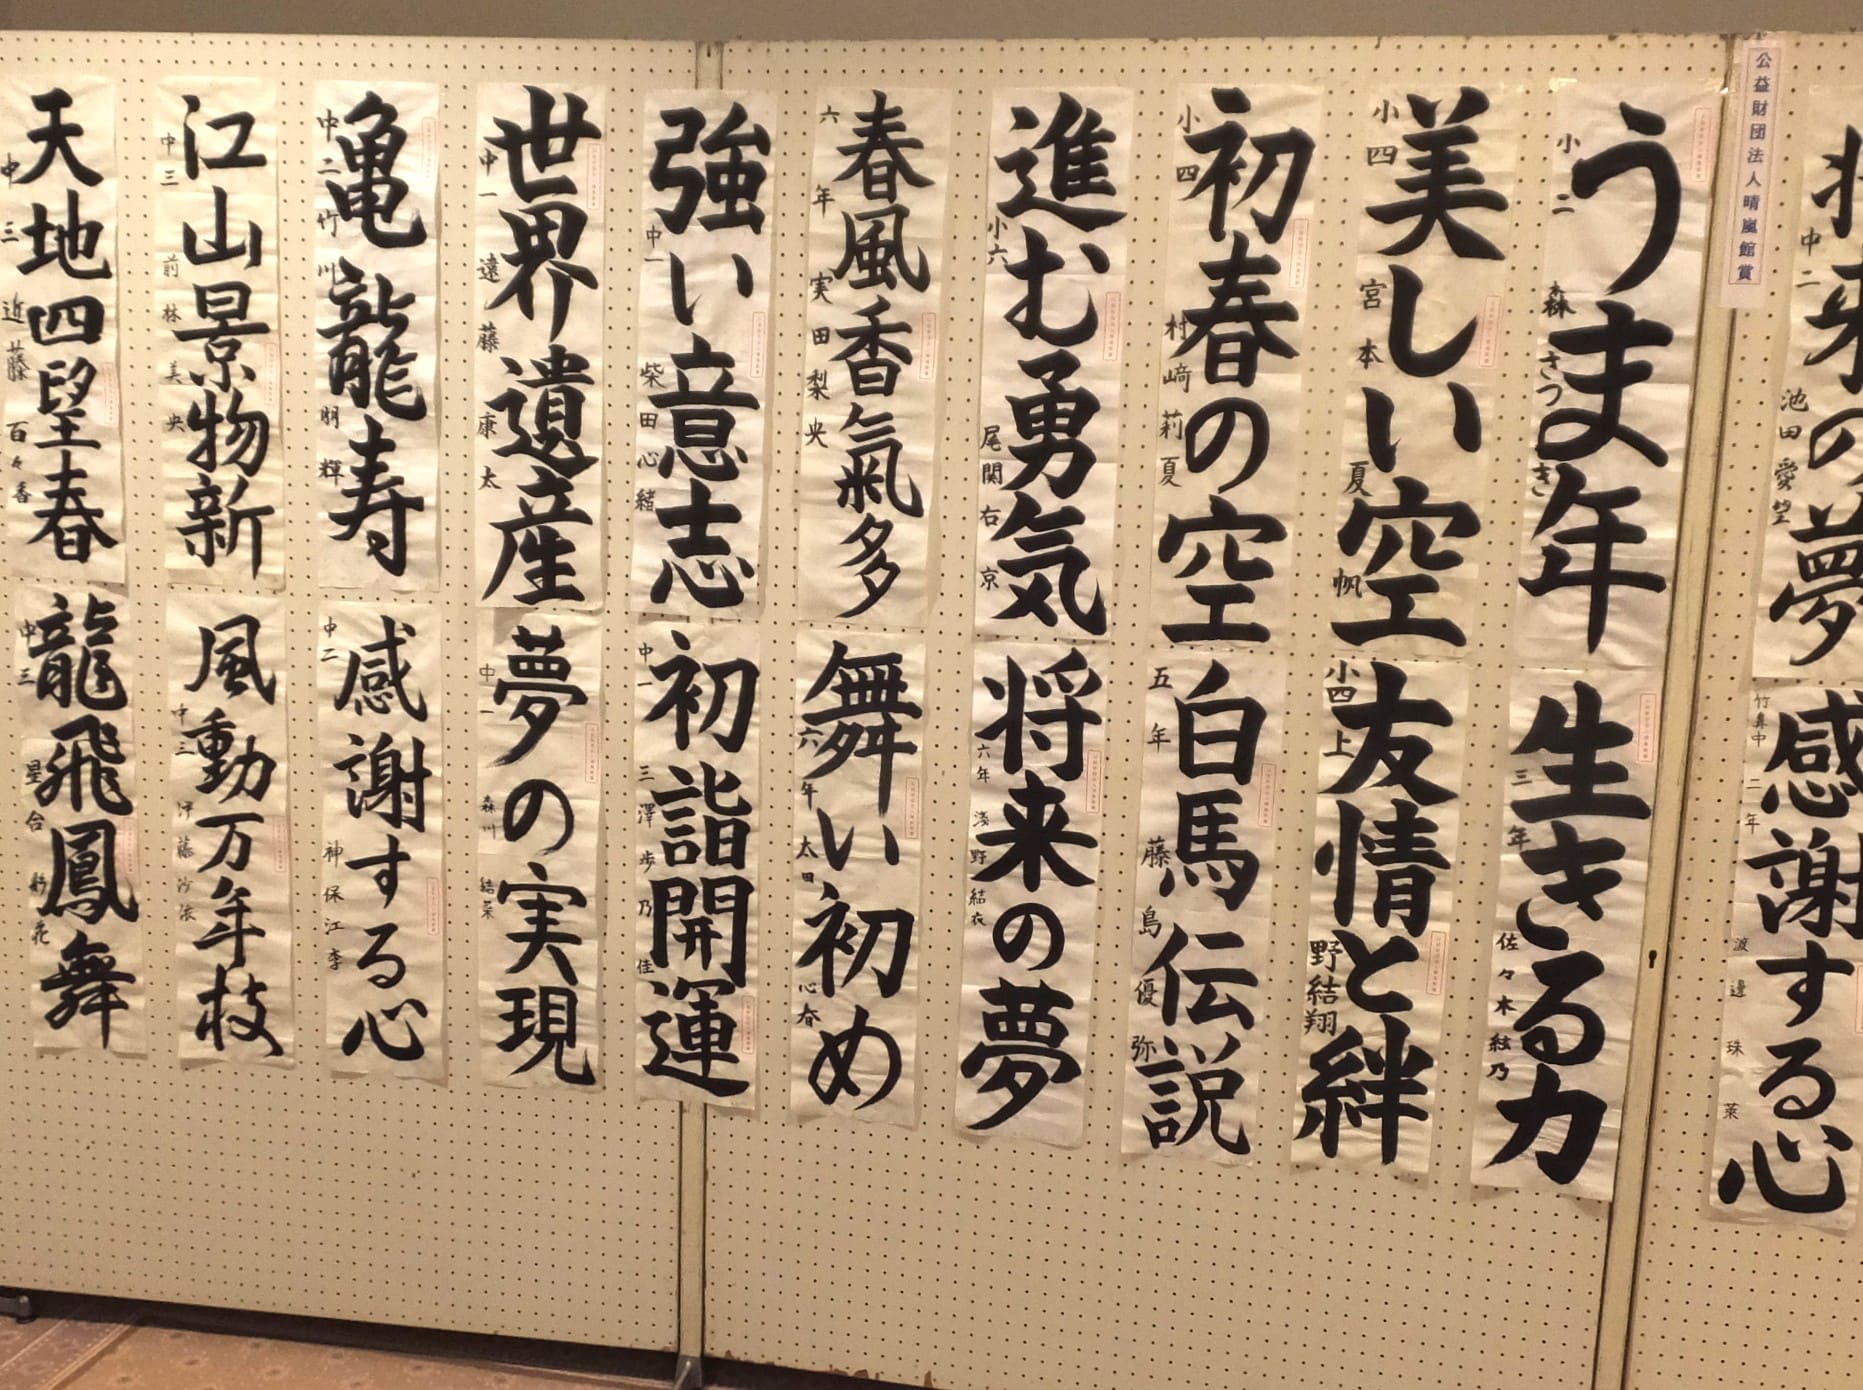 将来の夢
中二 池田愛望
感謝する心
竹鼻中二年 渡邉珠莱
公益財団法人晴嵐館賞
うま年
小二 森さつき
生きる力
三年 佐々木絃乃
美しい空
小四 宮本夏帆
友情と絆
小四 上野結翔
初春の空
小四 村﨑莉夏
白馬伝説
五年 藤島優弥
進む勇気
小六 尾関右京
将来の夢
六年 浅野結衣
春風香氣多
六年 実田梨央
舞い初め
六年 太田心春
強い意志
中一 柴田心緒
初詣開運
中一 三澤歩乃佳
世界遺産
中一 遠藤康太
夢の実現
中一 森川結菜
亀龍寿
中二 竹川朋輝
感謝する心
中二 神保江李
江山景物新
中三 前林美央
風動万年枝
中三 伊藤沙
天地四望春
中三 近藤百々香
龍飛鳳舞
中三 星合彩花